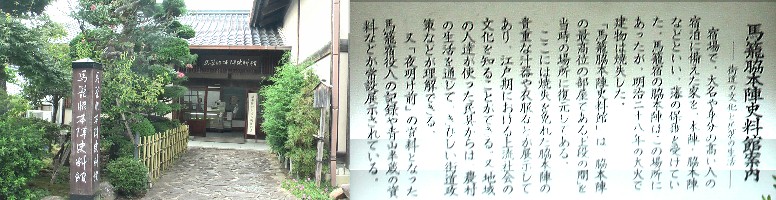 馬籠脇本陣史料館
馬籠脇本陣史料館
馬籠脇本陣史料館
馬籠脇本陣史料館案内
――街道の文化と民衆の生活――
宿場で、大名や身分の高い人の
宿泊に備えた家を、本陣、脇本陣
などといい、藩の保護を受けてい
た。馬籠宿の脇本陣はこの場所に
あったが、明治二十八年の大火で
建物は焼失した。
「馬籠脇本陣史料館」は、脇本陣
の最高位の部屋である上段の間を
当時の場所に復元してある。
ここには焼失を免れた脇本陣の
貴重な什器や衣服などが展示して
あり、江戸期における上流社会の
文化を知ることができる。又地域
の人達が使った元具からは、農村
の生活を通して、きびしい街道政
策などが理解できる。
又「夜明け前」の資料となった
馬籠宿役人の記録や青山半蔵の資
料などが常設展示されている。